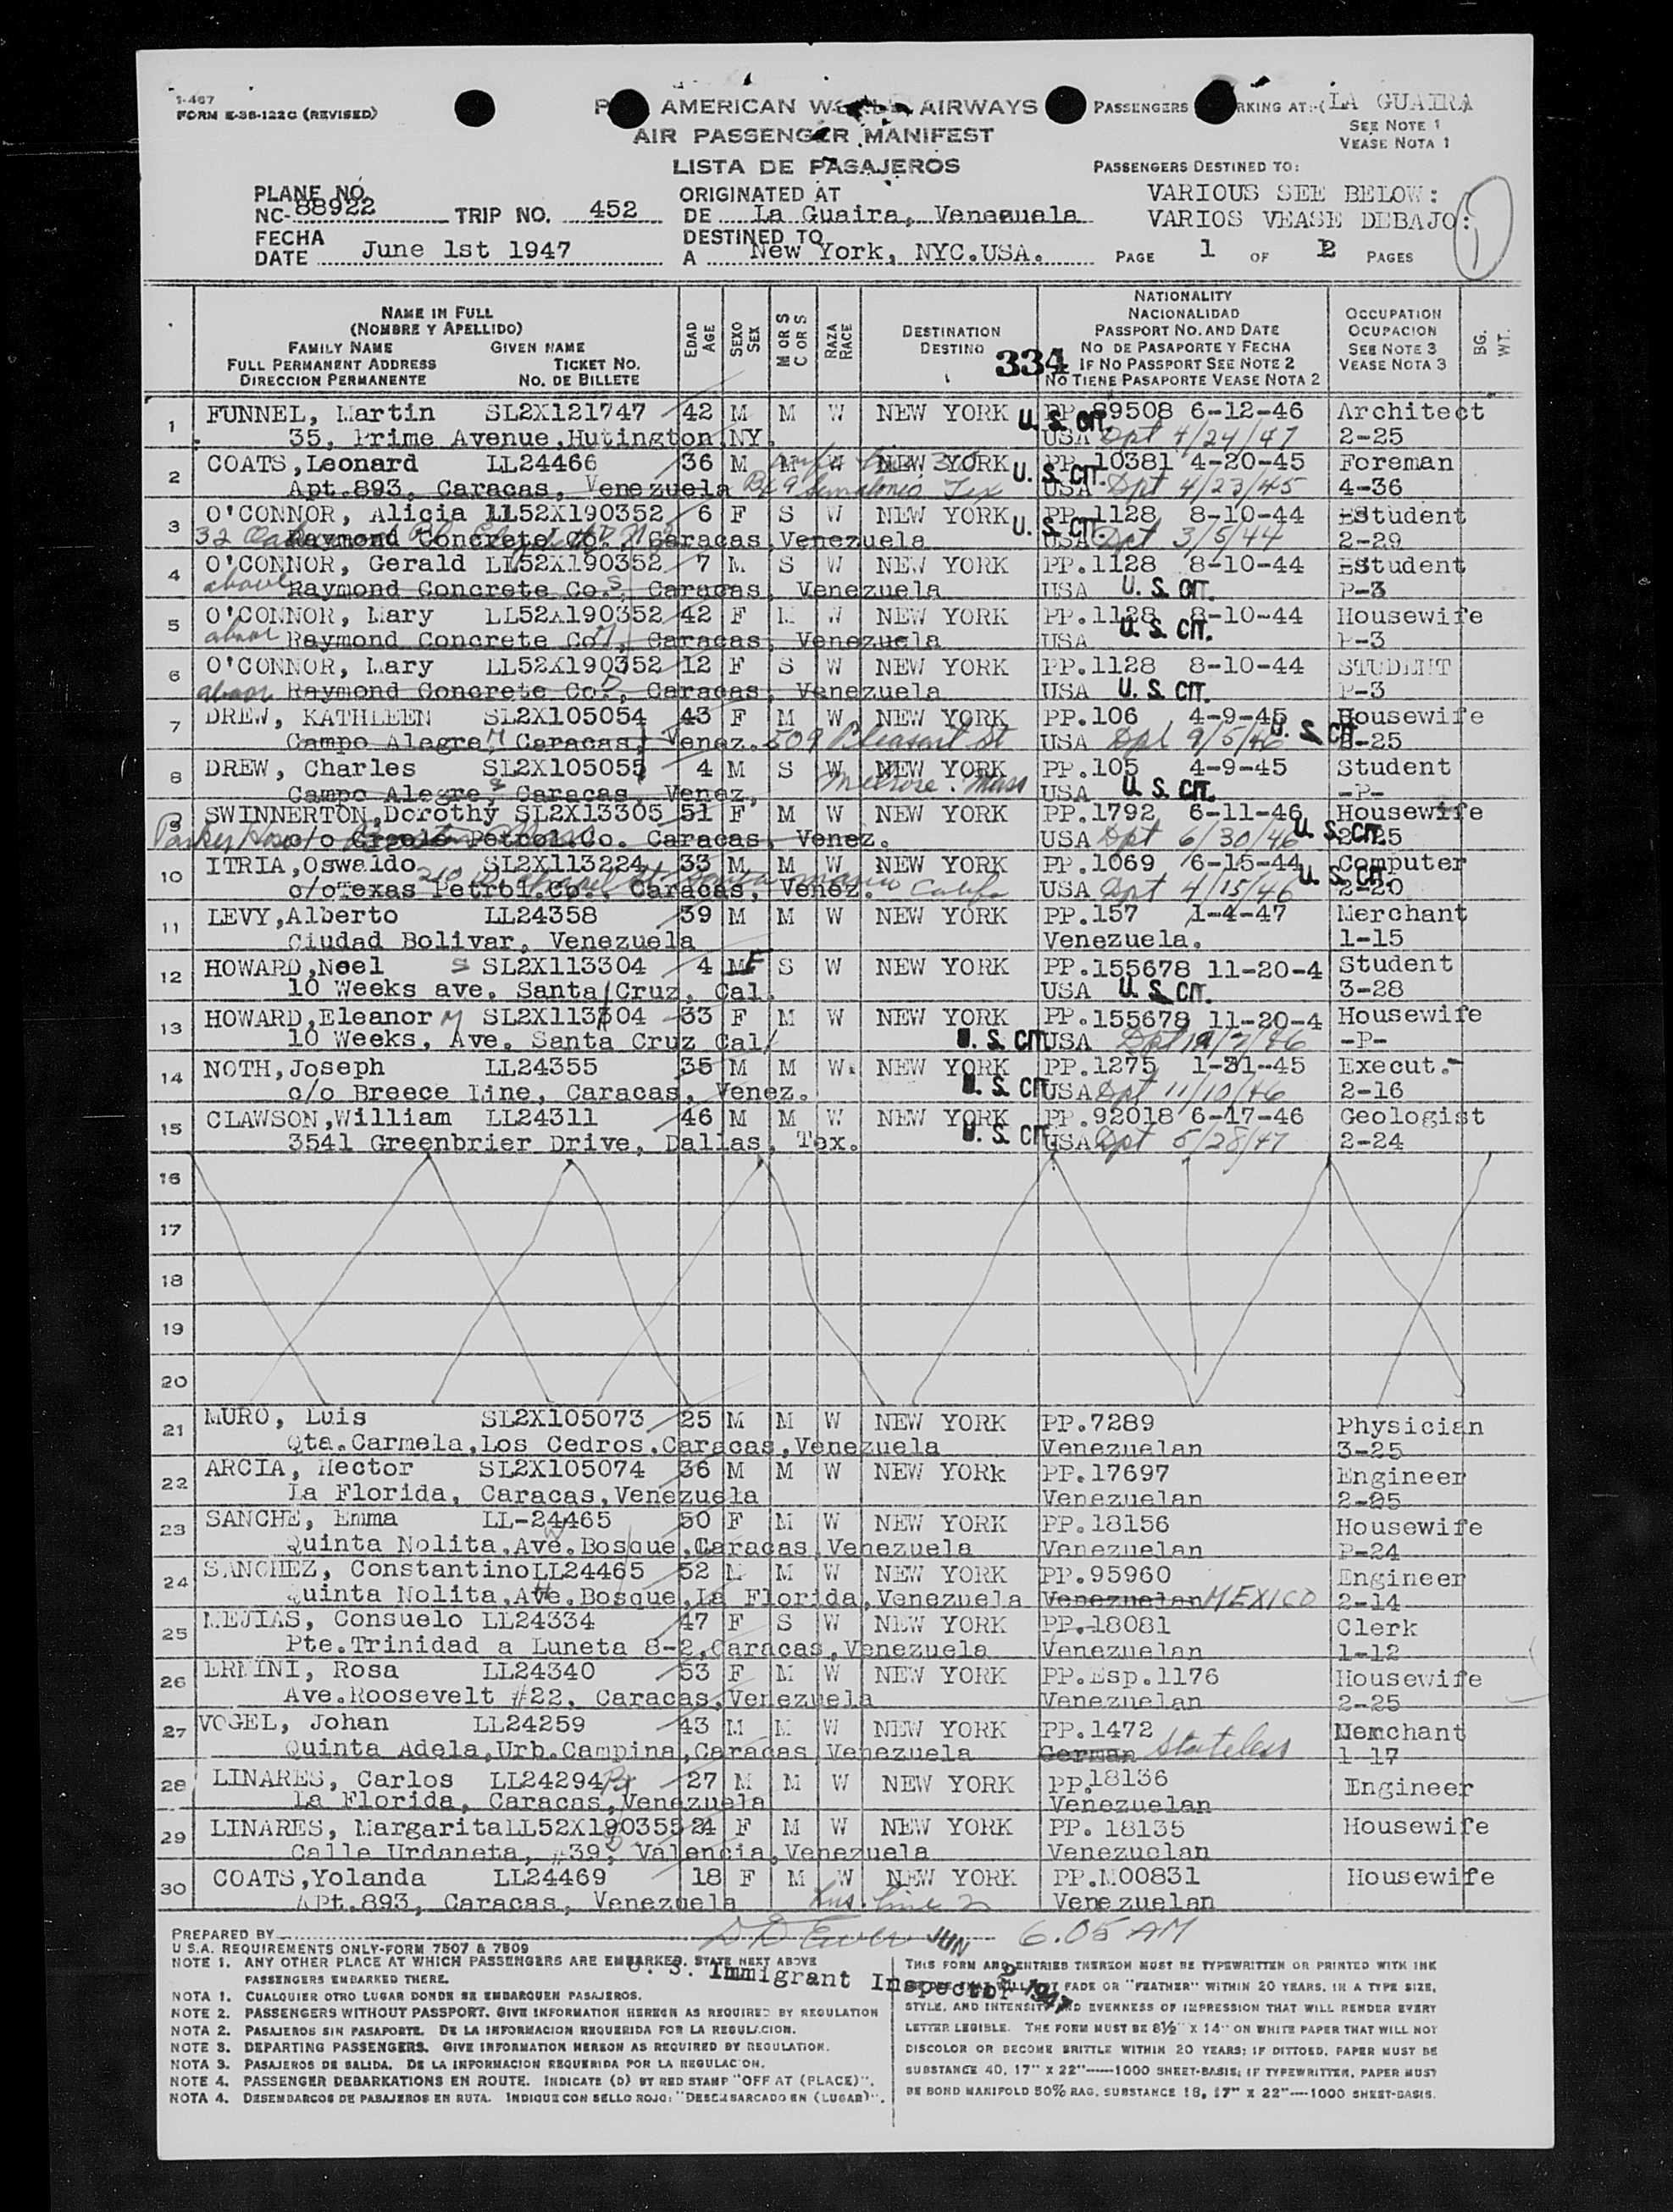 1-467
FORM E-38-122C (REVISED)
AMERICAN AIRWAYS
AIR PASSENGER MANIFEST
LISTA DE PASAJEROS
PASSENGERS RKING AT:-( LA GUAIRA
SEE NOTE 1
VEASE NOTA 1
PASSENGERS DESTINED TO:
VARIOUS SEE BELOW:
VARIOS VEASE DEBAJO:
1
PLANE NO.
NC-88922 TRIP NO. 452
ORIGINATED AT
DE La Guaira, Venezuela
FECHA
DATE June 1st 1947
DESTINED TO
A New York, NYC.USA.
PAGE 1 OF 2 PAGES
NAME IN FULL
(NOMBRE Y APELLIDO)
FAMILY NAME GIVEN NAME
FULL PERMANENT ADDRESS TICKET NO.
DIRECCION PERMANENTE NO. DE BILLETE
EDAD AGE
SEXO SEX
M OR S C OR S
RAZA RACE
DESTINATION
DESTINO
334
NATIONALITY
NACIONALIDAD
PASSPORT NO. AND DATE
NO DE PASAPORTE Y FECHA
IF NO PASSPORT SEE NOTE 2
NO TIENE PASAPORTE VEASE NOTA 2
OCCUPATION
OCUPACION
SEE NOTE 3
VEASE NOTA 3
BG. WT.
1 FUNNEL, Martin SL2X121747 42 M M W NEW YORK U. S. CIT. PP.89508 6-12-46 Architect
35, Prime Avenue,Hutington,NY. USA Dpt 4/24/47 2-25
2 COATS,Leonard LL24466 36 M M W NEW YORK U. S. CIT. PP.10381 4-20-45 Foreman
Apt.893, Caracas, Venezuela Tex USA Dpt 4/23/45 4-36
3 O'CONNOR, Alicia LL52X190352 6 F S W NEW YORK U. S. CIT. PP.1128 8-10-44 Student
32 Raymond Concrete Co. Caracas,Venezuela USA Dpt 3/5/44 2-29
4 O'CONNOR, Gerald LL52X190352 7 M S W NEW YORK PP.1128 8-10-44 Student
above Raymond Concrete Co., Caracas, Venezuela USA U. S. CIT. P-3
5 O'CONNOR, Mary LL52X190352 42 F M W NEW YORK PP.1128 8-10-44 Housewife
above Raymond Concrete Co., Caracas, Venezuela USA U. S. CIT. P-3
6 O'CONNOR, Mary LL52X190352 12 F S W NEW YORK PP.1128 8-10-44 STUDENT
above Raymond Concrete Co., Caracas, Venezuela USA U. S. CIT. P-3
7 DREW, KATHLEEN SL2X105054 43 F M W NEW YORK PP.106 4-9-45 Housewife
Campo Alegre, Caracas, Venez. 509 Pleasant St USA Dpt 9/5/46 U. S. CIT. -25
8 DREW, Charles SL2X105055 4 M S W NEW YORK PP.105 4-9-45 Student
Campo Alegre, Caracas, Venez, Melrose. Mass USA U. S. CIT. -P-
9 SWINNERTON,Dorothy SL2X13305 51 F M W NEW YORK PP.1792 6-11-46 Housewife
Parker House c/o Creole Petrol.Co. Caracas, Venez. USA Dpt 6/30/46 U. S. CIT. 2-25
10 ITRIA,Oswaldo SL2X113224 33 M M W NEW YORK PP.1069 6-15-44 Computer
c/oTexas Petrol.Co., Caracas, Venez. Calif USA Dpt 4/15/46 U. S. CIT. 2-20
11 LEVY,Alberto LL24358 39 M M W NEW YORK PP.157 1-4-47 Merchant
Ciudad Bolivar, Venezuela Venezuela. 1-15
12 HOWARD,Noel S SL2X113304 4 M F S W NEW YORK PP.155678 11-20-4 Student
10 Weeks ave. Santa Cruz, Cal. USA U. S. CIT. 3-28
13 HOWARD,Eleanor M SL2X113304 33 F M W NEW YORK PP.155678 11-20-4 Housewife
10 Weeks, Ave. Santa Cruz Cal/ U. S. CIT USA -P-
14 NOTH,Joseph LL24355 35 M M W NEW YORK PP.1275 1-31-45 Execut.-
c/o Breece Line, Caracas, Venez. U. S. CIT USA Dpt 11/10/46 2-16
15 CLAWSON,William LL24311 46 M M W NEW YORK PP.92018 6-17-46 Geologist
3541 Greenbrier Drive, Dallas, Tex. U. S. CIT USA Dpt 5/28/47 2-24
16
17
18
19
20
21 MURO, Luis SL2X105073 25 M M W NEW YORK PP.7289 Physician
Qta.Carmela,Los Cedros.Caracas,Venezuela Venezuelan 3-25
22 ARCIA, Hector SL2X105074 36 M M W NEW YORk PP.17697 Engineer
La Florida, Caracas,Venezuela Venezuelan 2-25
23 SANCHE, Emma LL-24465 50 F M W NEW YORK PP.18156 Housewife
Quinta Nolita,Ave.Bosque,Caracas,Venezuela Venezuelan P-24
24 SANCHEZ, Constantino LL24465 52 M M W NEW YORK PP.95960 Engineer
Quinta Nolita,Ave.Bosque,La Florida,Venezuela Venezuelan MEXICO 2-14
25 MEJIAS, Consuelo LL24334 47 F S W NEW YORK PP.-18081 Clerk
Pte.Trinidad a Luneta 8-2,Caracas,Venezuela Venezuelan 1-12
26 ERMINI, Rosa LL24340 53 F M W NEW YORK PP.Esp.1176 Housewife
Ave.Roosevelt #22, Caracas,Venezuela Venezuelan 2-25
27 VOGEL, Johan LL24259 43 M M W NEW YORK PP.1472 Merchant
Quinta Adela,Urb.Campina,Caracas,Venezuela German Stateless 1-17
28 LINARES, Carlos LL24294 27 M M W NEW YORK PP.18136 Engineer
La Florida, Caracas,Venezuela Venezuelan
29 LINARES, Margarita LL52X190355 24 F M W NEW YORK PP. 18135 Housewife
Calle Urdaneta, #39, Valencia,Venezuela Venezuelan
30 COATS,Yolanda LL24469 18 F M W NEW YORK PP.M00831 Housewife
APt.893, Caracas, Venezuela Venezuelan
PREPARED BY JUN 6.05 AM
U S.A. REQUIREMENTS ONLY-FORM 7507 & 7509
U. S. Immigrant Inspector
NOTE 1. ANY OTHER PLACE AT WHICH PASSENGERS ARE EMBARKED. STATE NEXT ABOVE
PASSENGERS EMBARKED THERE.
NOTA 1. CUALQUIER OTRO LUGAR DONDE SE EMBARQUEN PASAJEROS.
NOTE 2. PASSENGERS WITHOUT PASSPORT. GIVE INFORMATION HEREON AS REQUIRED BY REGULATION
NOTA 2. PASAJEROS SIN PASAPORTE. DE LA INFORMACION REQUERIDA FOR LA REGULACION.
NOTE 3. DEPARTING PASSENGERS. GIVE INFORMATION HEREON AS REQUIRED BY REGULATION.
NOTA 3. PASAJEROS DE SALIDA. DE LA INFORMACION REQUERIDA POR LA REGULACION.
NOTE 4. PASSENGER DEBARKATIONS EN ROUTE. INDICATE (D) BY RED STAMP "OFF AT (PLACE)".
NOTA 4. DESEMBARCOS DE PASAJEROS EN RUTA. INDIQUE CON SELLO ROJO: "DESEMBARCADO EN (LUGAR)".
THIS FORM AND ENTRIES THEREON MUST BE TYPEWRITTEN OR PRINTED WITH INK
FADE OR "FEATHER" WITHIN 20 YEARS, IN A TYPE SIZE,
STYLE, AND INTENSITY AND EVENNESS OF IMPRESSION THAT WILL RENDER EVERY
LETTER LEGIBLE. THE FORM MUST BE 8½" X 14" ON WHITE PAPER THAT WILL NOT
DISCOLOR OR BECOME BRITTLE WITHIN 20 YEARS; IF DITTOED, PAPER MUST BE
SUBSTANCE 40, 17" X 22"------1000 SHEET-BASIS; IF TYPEWRITTEN, PAPER MUST
BE BOND MANIFOLD 50% RAG, SUBSTANCE 18, 17" X 22"----1000 SHEET-BASIS.